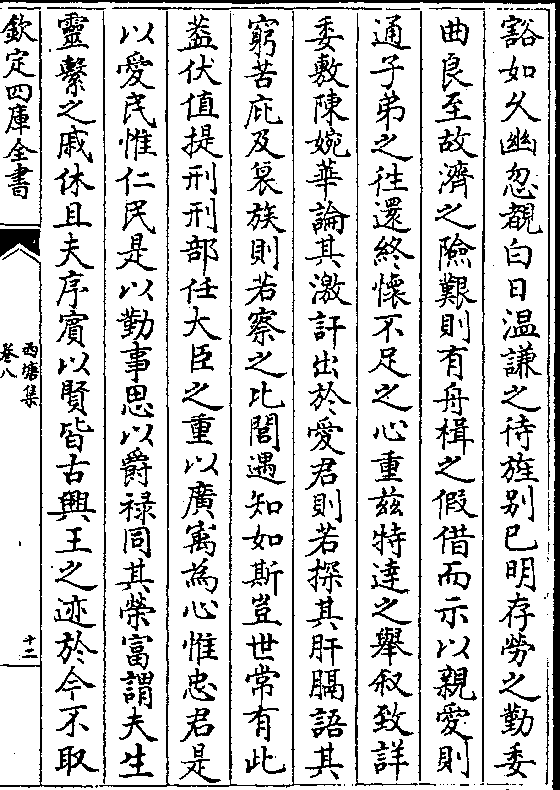 豁如久幽忽覩白日温謙之待旌别已明存勞之勤委
曲良至故濟之險艱則有舟楫之假借而示以親愛則
通子弟之往還終懷不足之心重兹特達之舉叙致詳
委敷陳婉華論其激訐出於愛君則若探其肝膈語其
窮苦庇及裒族則若察之比閭遇知如斯豈世常有此
葢伏值提刑刑部任大臣之重以廣寓為心惟忠君是
以愛民惟仁民是以勤事思以爵禄同其榮富謂夫生
靈繫之戚休且夫序賓以賢皆古興王之迹於今不取
欽定四庫全書
西塘集
卷八
十二